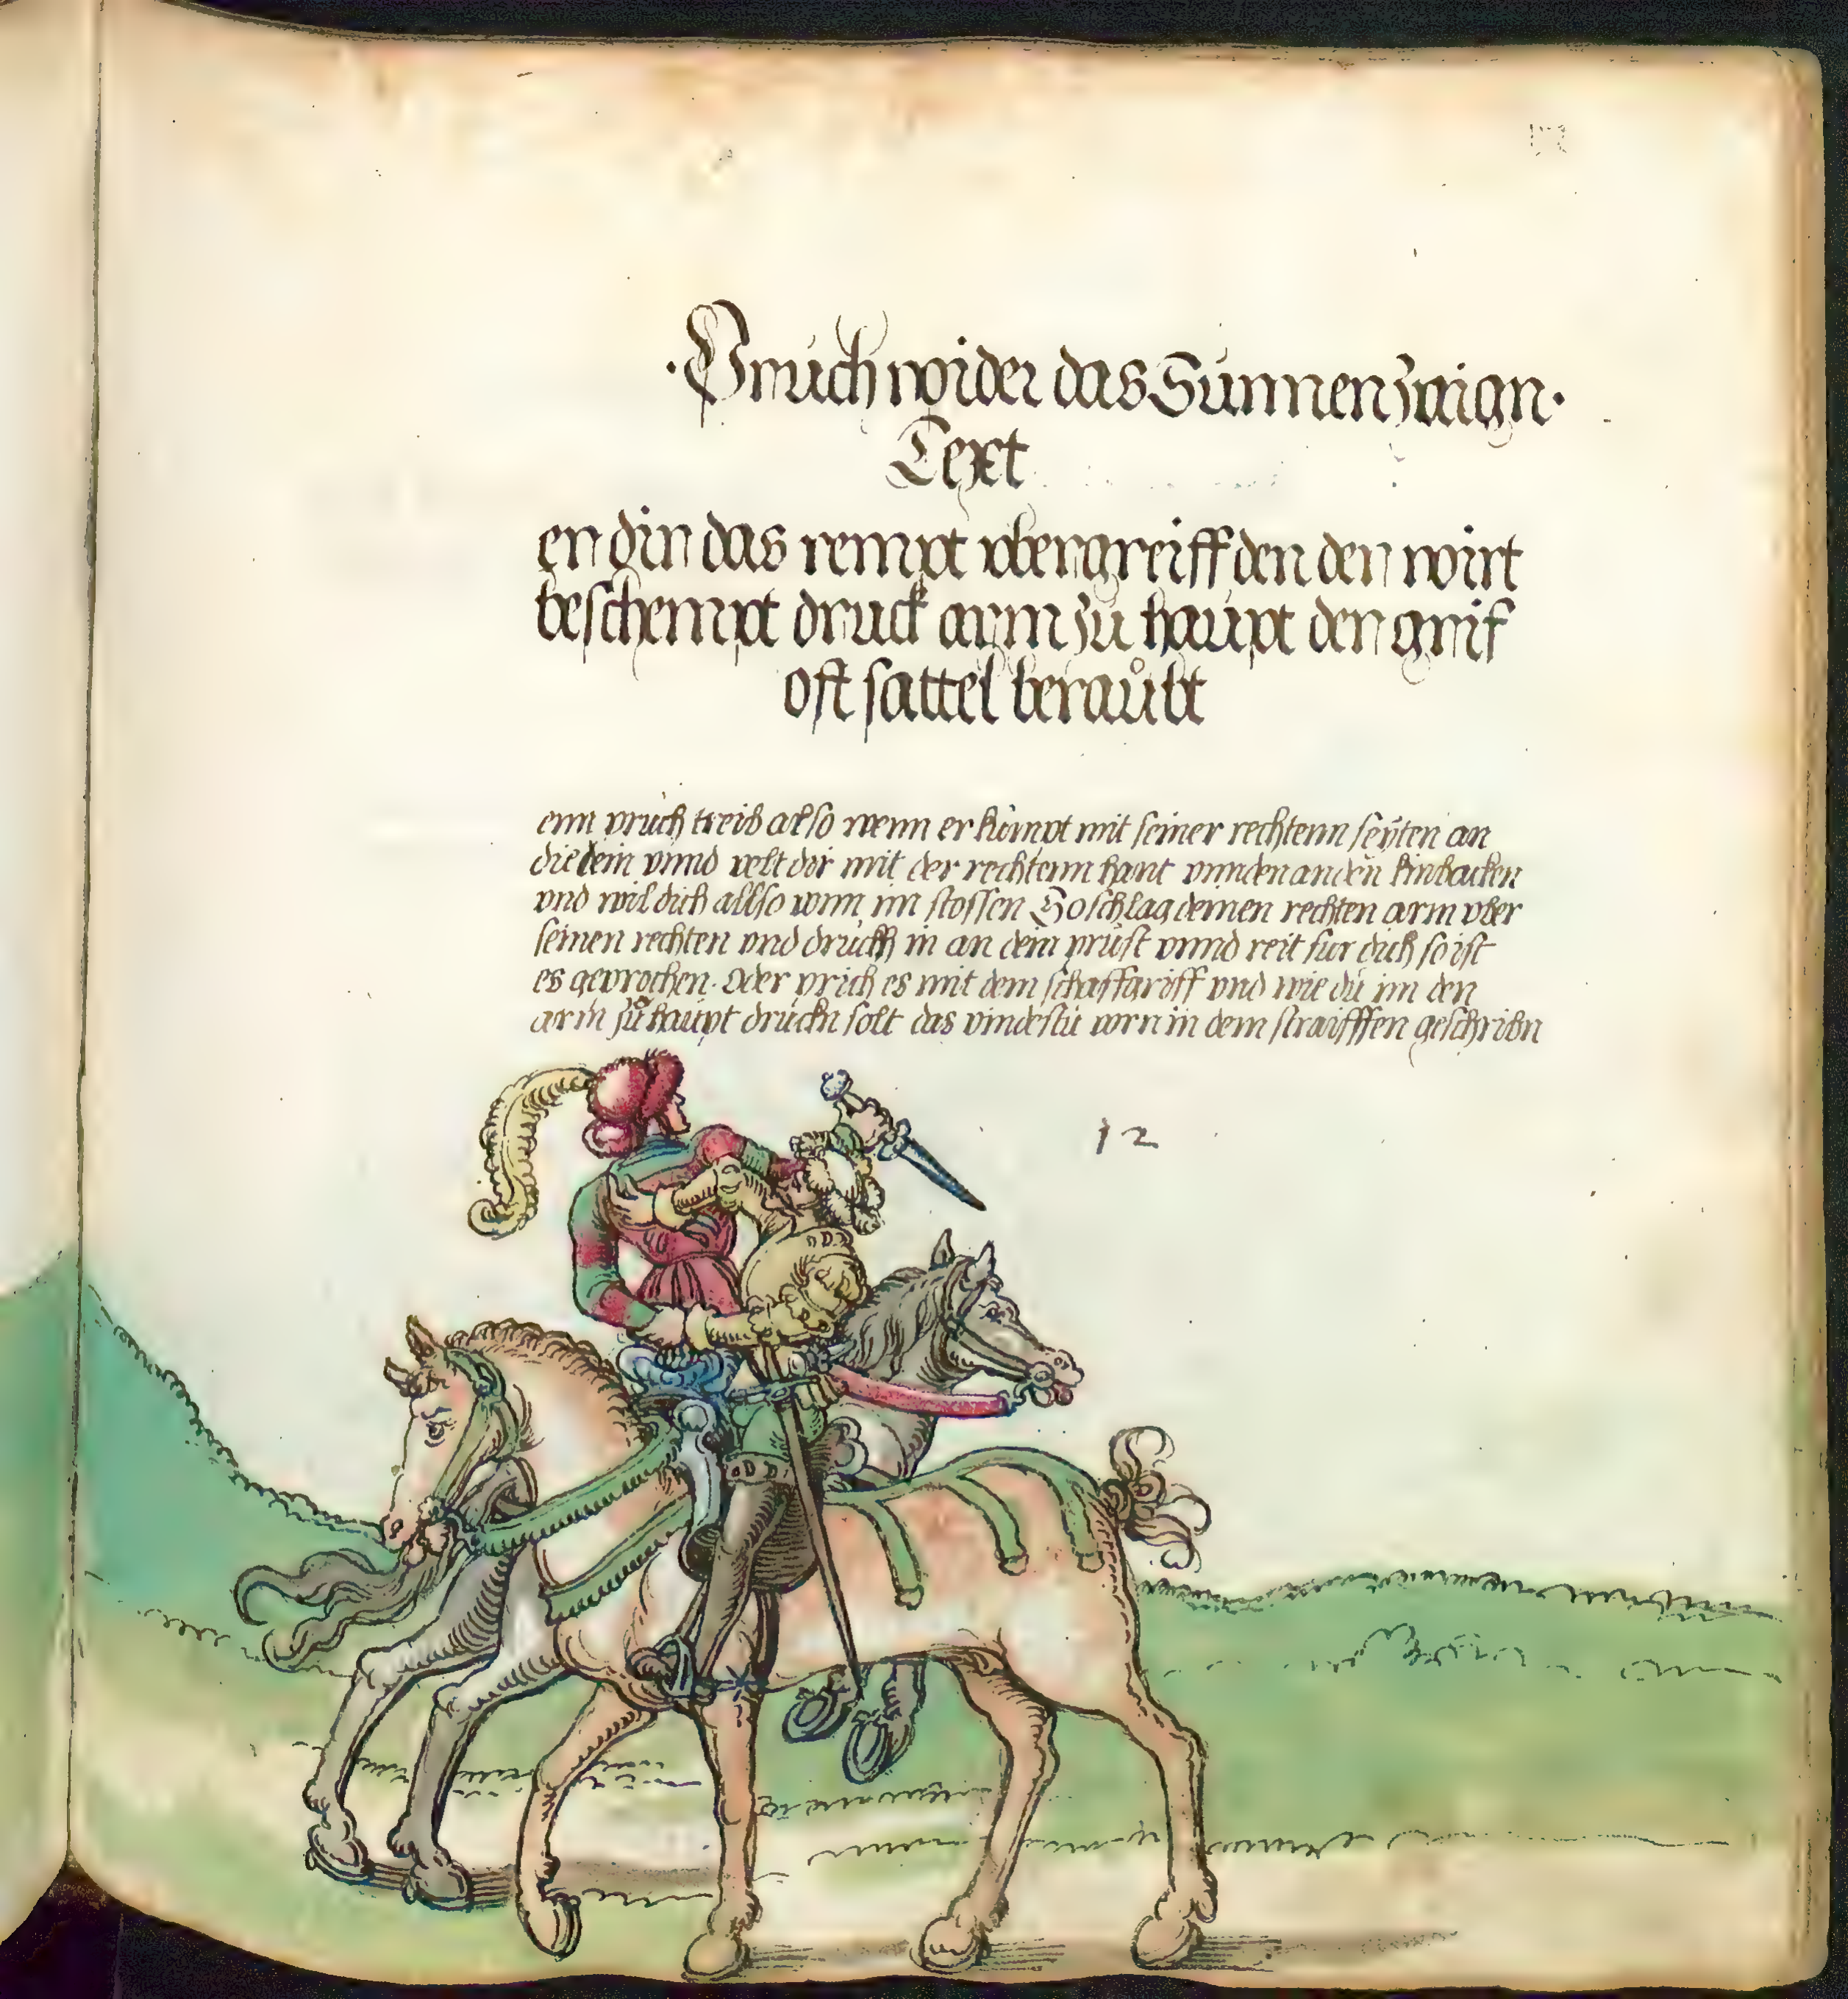 ·Pruch wider das Sunnen zaign·
Text
en din das rempt vbergreiff den den wirt
beschempt druck arm zu haupt der grif
oft sattel beraůbt
enn pruch treib also wenn er kumpt mit seiner rechtenn seyten an
die dein vnnd velt dir mit der rechtenn hant vnnden an den kinbacken
vnd wil dich allso vonn im stossen So schlag deinen rechten arm vber
seinen rechten vnd druckh in an dein prust vnnd reit fur dich so ist
es geprochen. Oder prich es mit dem schaffgriff vnd wie du im den
arm zů haupt druckn solt das vindestu vorn in dem straifffen geschribn
12